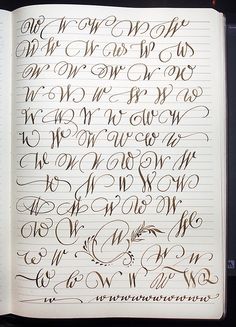 W W W W W
W W W W W W
W W W W W
W W w W W W
W W W W w w w
w W W W w w
w W W W W W
w W w W W
W W W W W
w W W w W
w W W
w W w
W w W W W W
w wwwwwwwwww